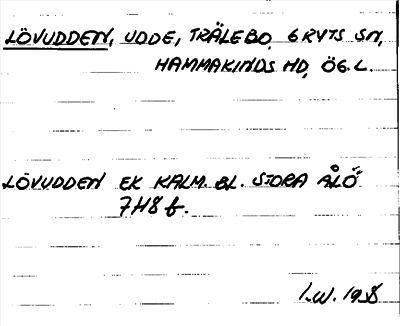 LÖVUDDEN, UDDE, TRÄLEBO, GRYTS SN,
HAMMARKINDS HD, ÖG. L.
LÖVUDDEN EK KALM. BL. STORA ÅLÖ
7H8 f.
I.W. 1958